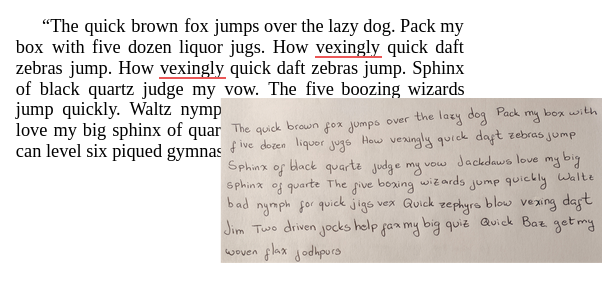 “The quick brown fox jumps over the lazy dog. Pack my
box with five dozen liquor jugs. How vexingly quick daft
zebras jump. How vexingly quick daft zebras jump. Sphinx
of black quartz judge my vow. The five boozing wizards
jump quickly. Waltz
love my big sphinx of
can level six piqued
The quick brown fox jumps over the lazy dog Pack my box with
five dozen liquor jugs How vexingly quick daft zebras jump
Sphinx of black quartz judge my vow Jackdaws love my big
sphinx of quartz The five boxing wizards jump quickly Waltz
bad nymph for quick jigs vex Quick zephyrs blow vexing daft
Jim Two driven jocks help fax my big quiz Quick Baz get my
woven flax jodhpurs